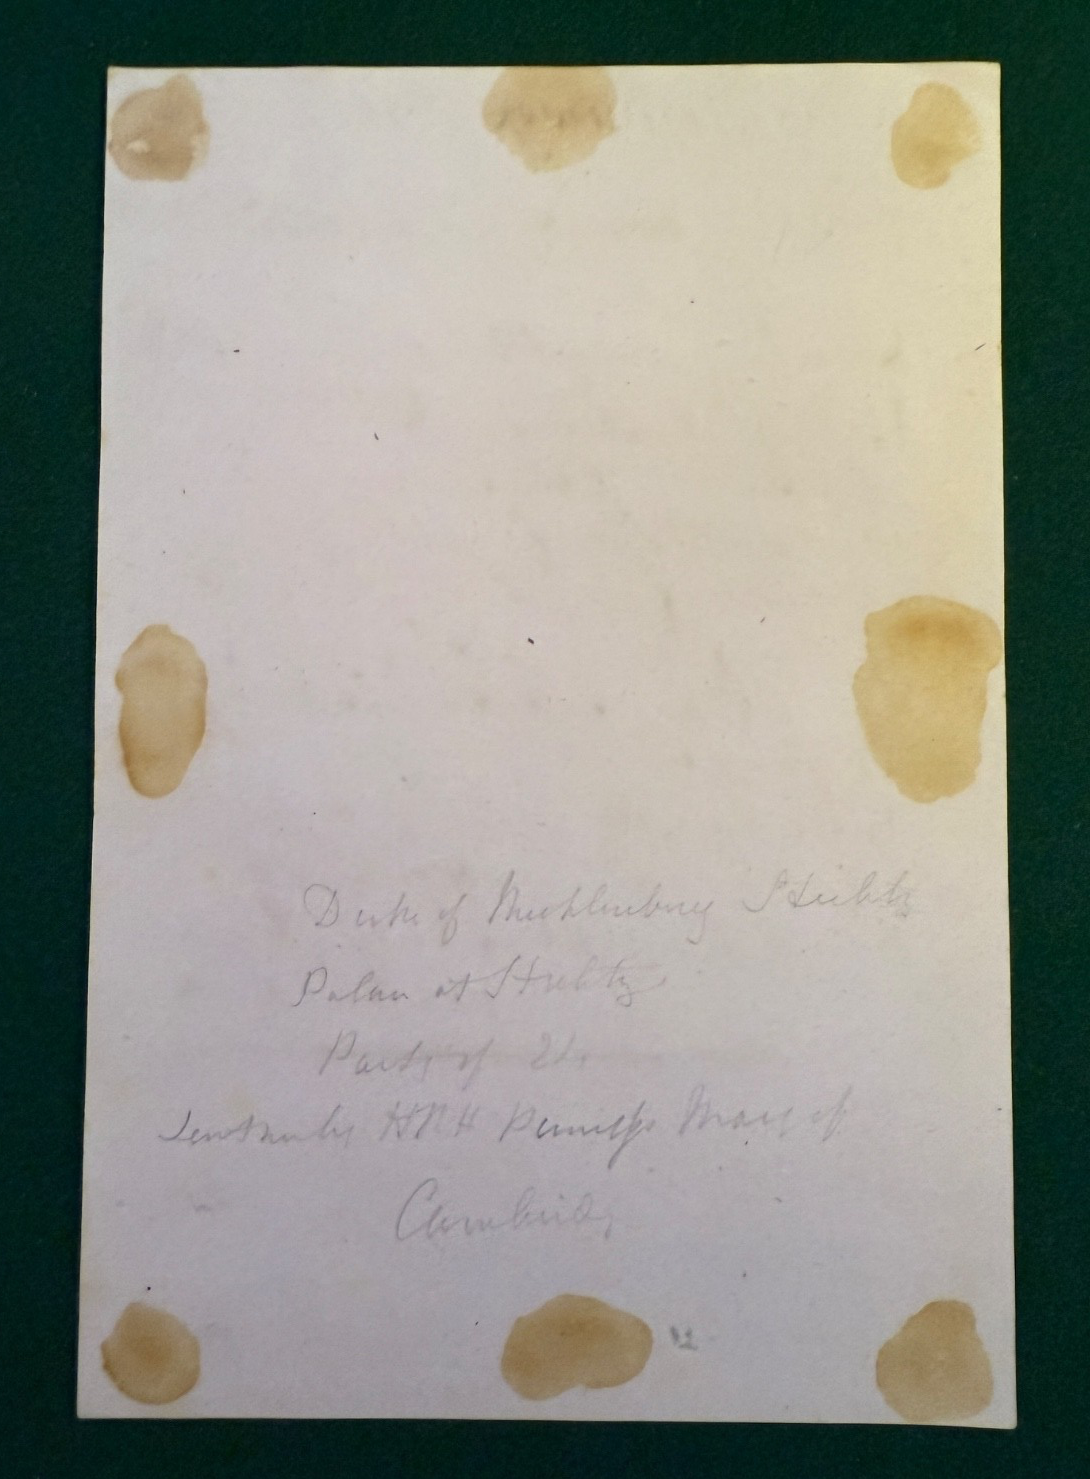 Duke of Mecklenburg Strelitz
Palace at Strelitz
Parts of
HRH Princess Mary of
Cambridge